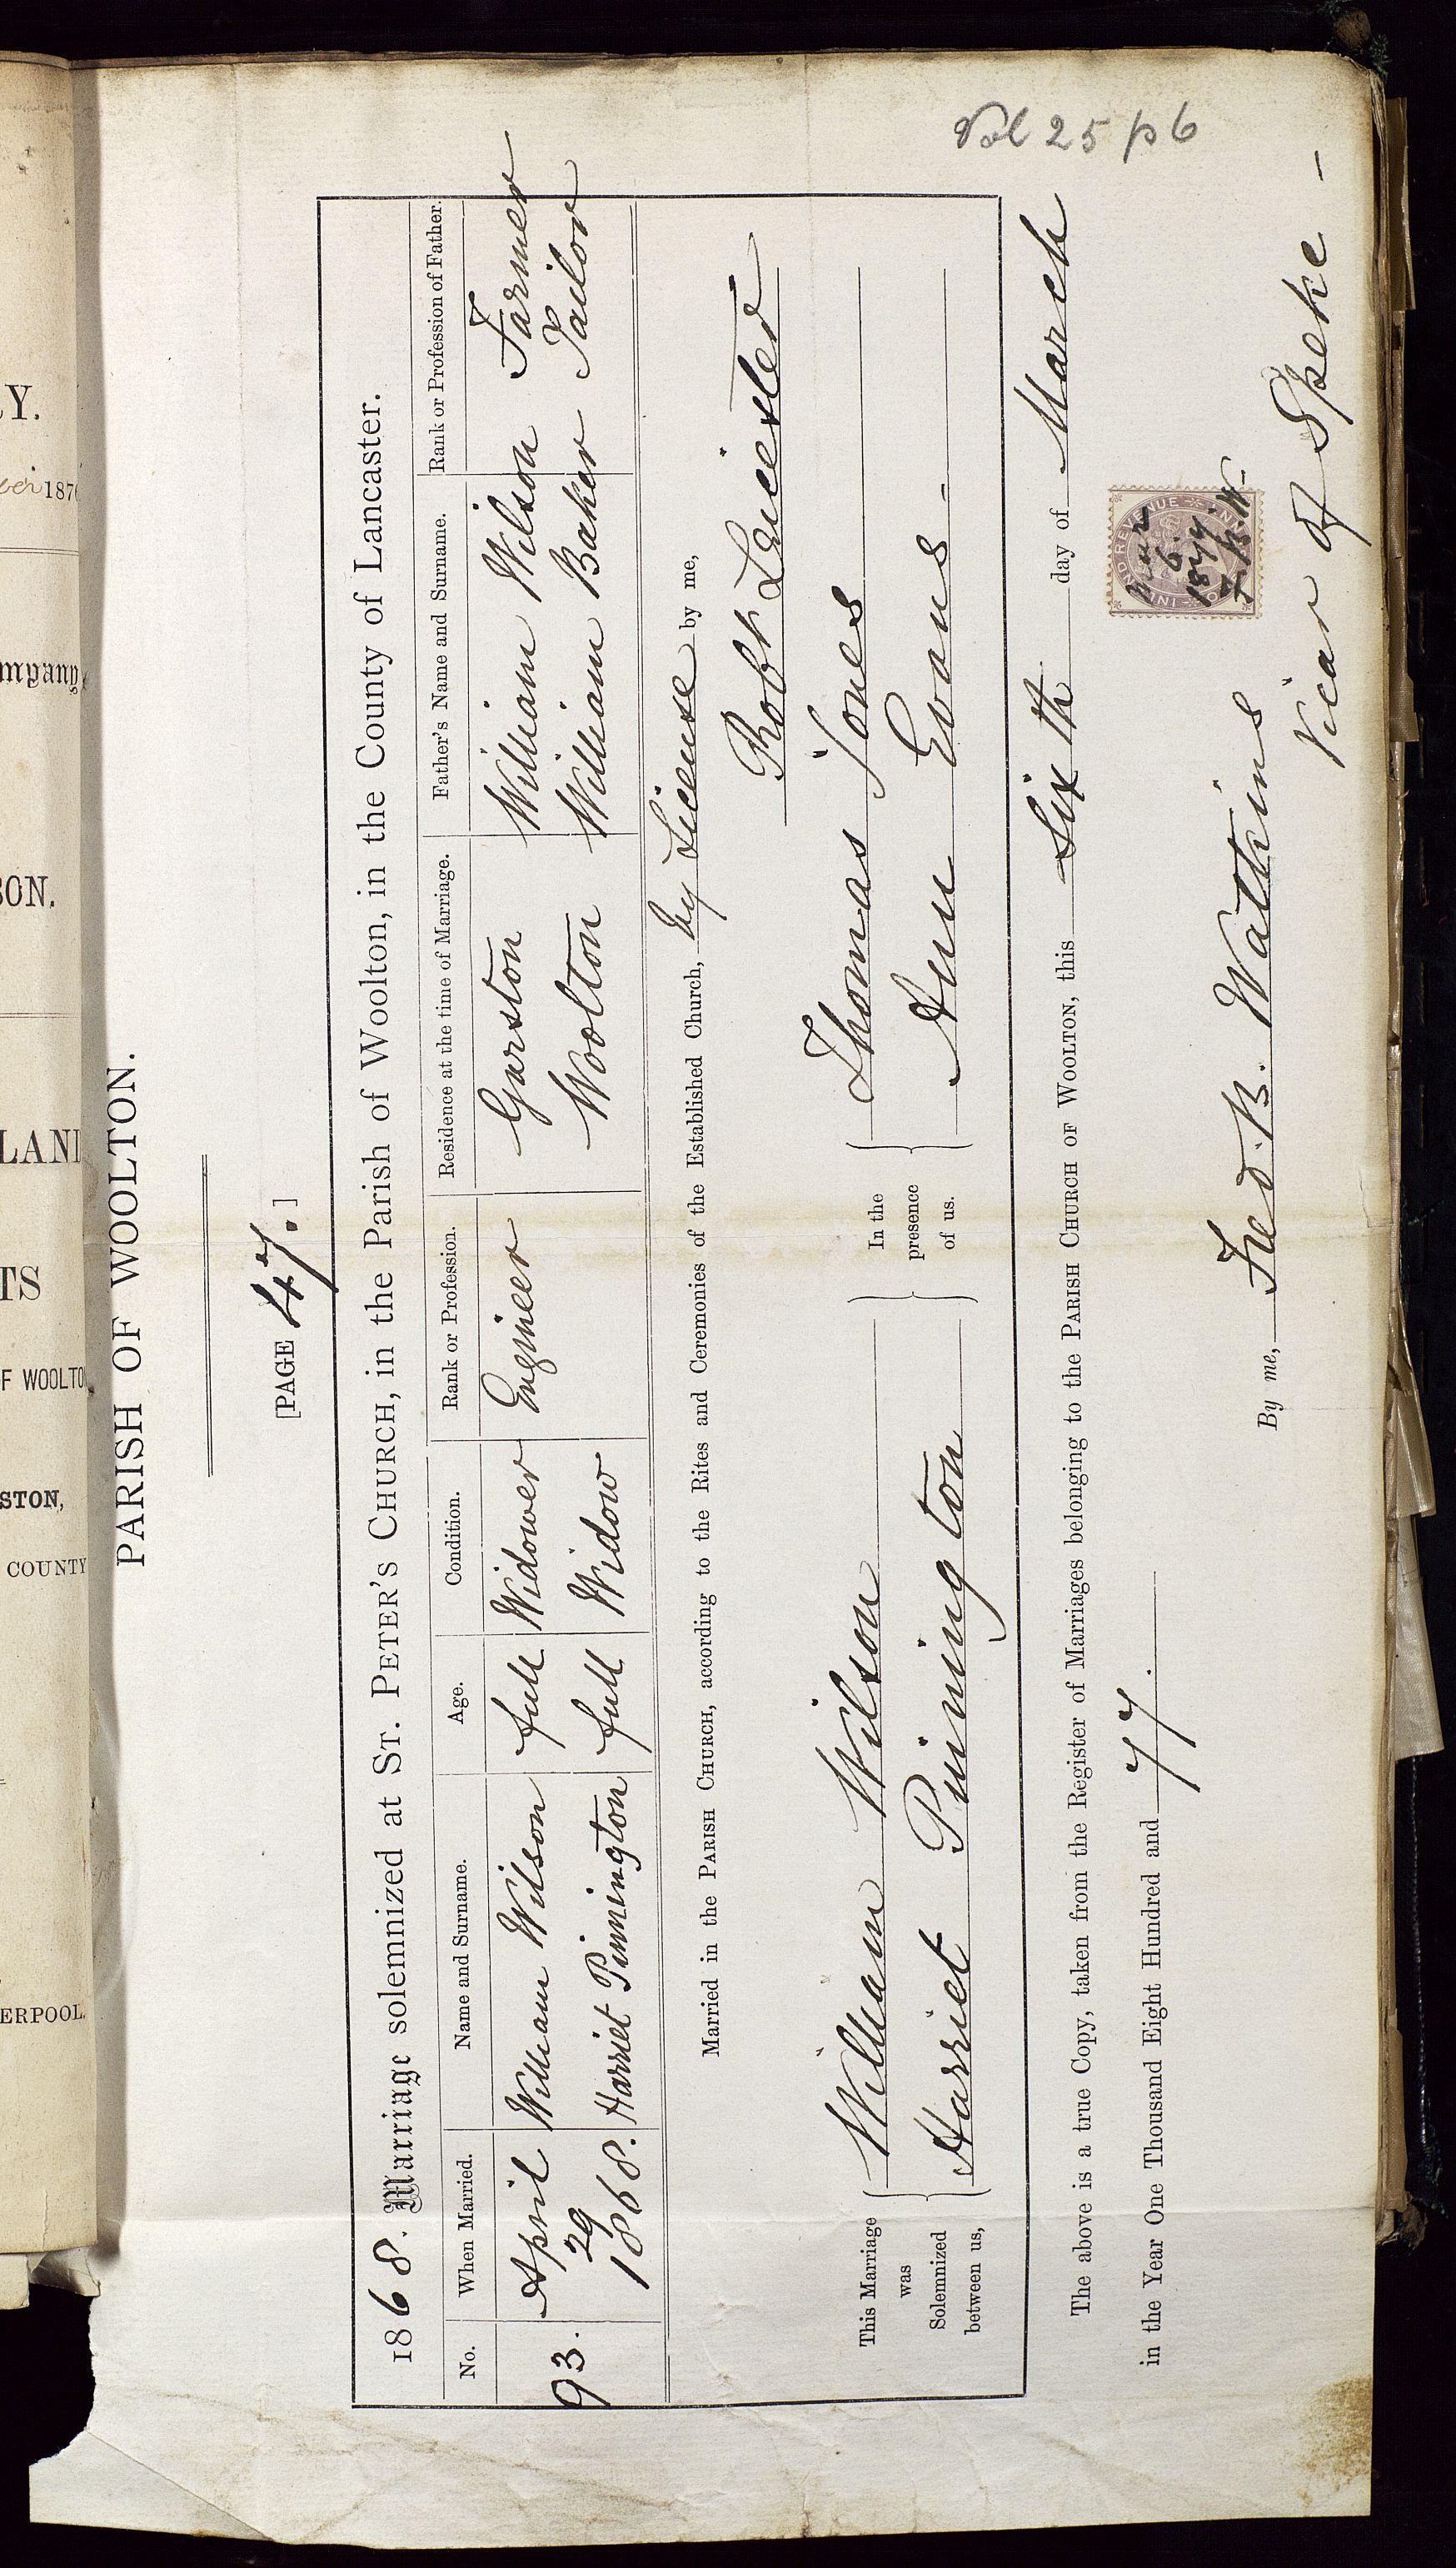 PARISH OF WOOLTON.
[PAGE 47.]
1868. Marriage solemnized at ST. PETER'S CHURCH, in the Parish of Woolton, in the County of Lancaster.
No. When Married. Name and Surname. Age. Condition. Rank or Profession. Residence at the time of Marriage. Father's Name and Surname. Rank or Profession of Father.
93. April 29 1868. William Wilson full Widower Engineer Garston William Wilson Farmer
Harriet Pinnington full Widow Woolton William Baker Tailor
Married in the PARISH CHURCH, according to the Rites and Ceremonies of the Established Church, by License by me,
Robt Leicester
This Marriage was Solemnized between us,
William Wilson
Harriet Pinington
In the presence of us.
Thomas Jones
Ann Evans
The above is a true Copy, taken from the Register of Marriages belonging to the PARISH CHURCH OF WOOLTON, this Sixth day of March
in the Year One Thousand Eight Hundred and 77.
By me, Fred. B. Watkins
Vicar of Speke -
INLAND REVENUE
Mar
6.
1877
F. B. W.
Vol 25 p 6
Y.
ber 187
mpany
SON.
LAN
TS
F WOOLTO
STON,
COUNTY
ERPOOL.